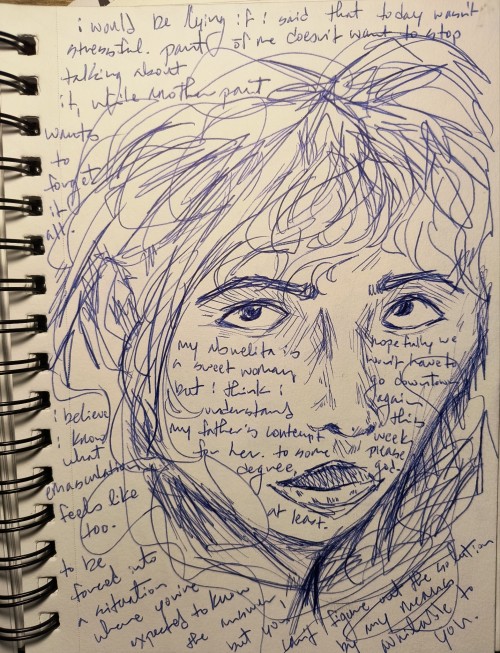 i would be lying if i said that today wasn't
stressful. part of me doesn't want to stop
talking about
it, while another part
wants
to
forget
it
all.
my abuelita is
a sweet woman
but i think i
understand
my father's contempt
for her. to some
degree,
at least.
hopefully we
won't have to
go downtown
again
this
week
please
god.
i believe
i know
what
emasculation
feels like
too.
to be
forced into
a situation
where you're
expected to know
the answer,
but you
can't figure out the solution
by any means
available to
you.